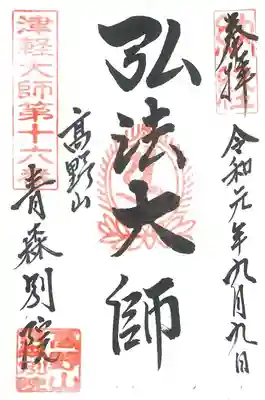 奉拝
令和元年九月九日
弘法大師
高野山
青森別院
津軽大師第十六番